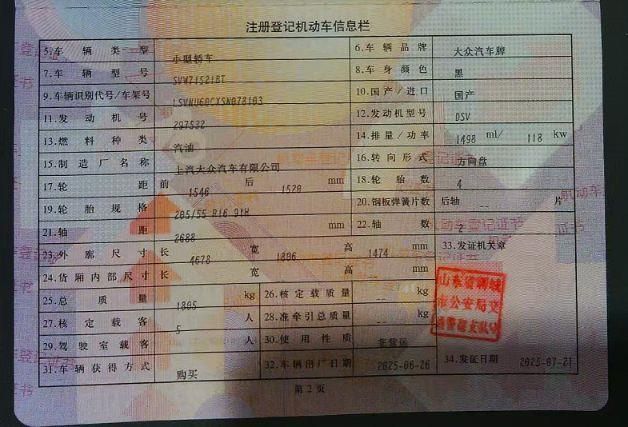 注册登记机动车信息栏
5.车辆类型 小型轿车 6.车辆品牌 大众汽车牌
7.车辆型号 SVW71521BT 8.车身颜色 黑
9.车辆识别代号/车架号 LSVNU60CXSN078103 10.国产/进口 国产
11.发动机号 297532 12.发动机型号 DSV
13.燃料种类 汽油 14.排量/功率 1498 ml/ 118 kw
15.制造厂名称 上汽大众汽车有限公司 16.转向形式 方向盘
17.轮距 前 1546 后 1528 mm 18.轮胎数 4
19.轮胎规格 205/55 R16 91H 20.钢板弹簧片数 后轴 -- 片
21.轴距 2688 mm 22.轴数 2
23.外廓尺寸 长 4678 宽 1806 高 1474 mm 33.发证机关章
24.货厢内部尺寸 长 宽 高 mm
25.总质量 1805 kg 26.核定载质量 -- kg
27.核定载客 5 人 28.准牵引总质量 -- kg
29.驾驶室载客 人 30.使用性质 非营运
31.车辆获得方式 购买 32.车辆出厂日期 2025-06-26 34.发证日期 2025-07-21
山东省聊城
市公安局交
通警察支队
第2页